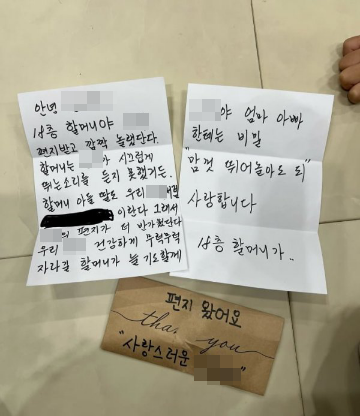 안녕
14층 할머니야
편지받고 깜짝 놀랬단다.
할머니는 가 시끄럽게
뛰는소리를 듣지 못했거든.
할머니 아들 딸도 우리
이란다 그래서
의 편지가 더 반가웠단다
우리 건강하게 무럭무럭
자라길 할머니가 늘 기도할께
야 엄마 아빠
한테는 비밀
"맘껏 뛰어놀아도 되"
사랑합니다
14층 할머니가..
편지 왔어요
thank you
"사랑스러운 "